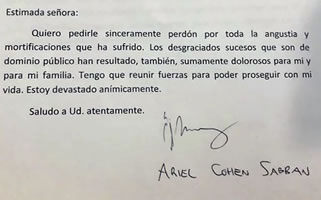 Estimada señora:
Quiero pedirle sinceramente perdón por toda la angustia y
mortificaciones que ha sufrido. Los desgraciados sucesos que son de
dominio público han resultado, también, sumamente dolorosos para mi y
para mi familia. Tengo que reunir fuerzas para poder proseguir con mi
vida. Estoy devastado anímicamente.
Saludo a Ud. atentamente.
ARIEL COHEN SABBAN